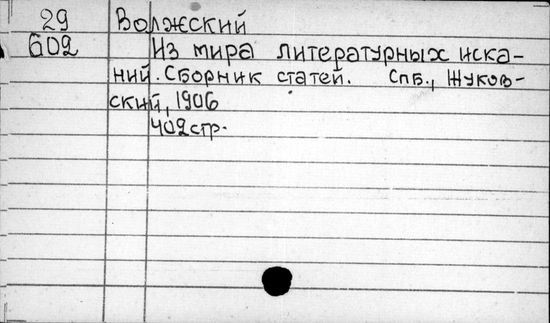 29 Волжский
602 Из мира литературных иска-
ний. Сборник статей. Спб., Жуков-
ский, 1906
402стр.